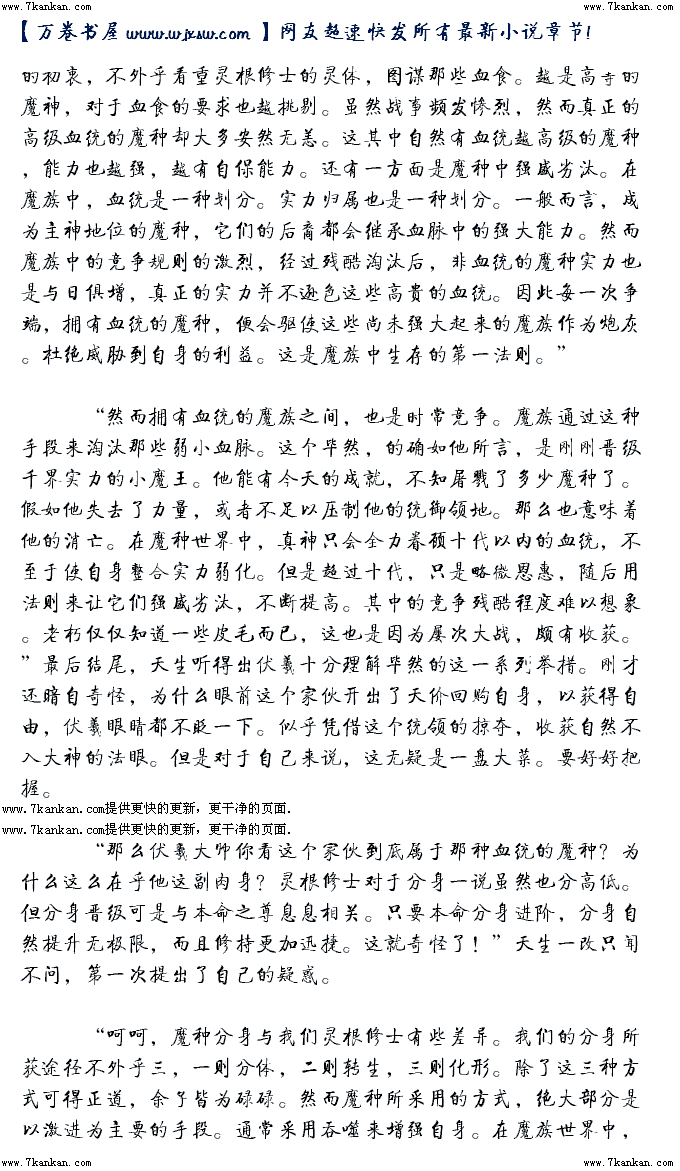 www.7kankan.com
www.7kankan.com
www.7kankan.com
【万卷书屋 www.wjxsw.com 】网友超速快发所有最新小说章节!
的初衷，不外乎看重灵根修士的灵体，图谋那些血食。越是高等的
魔神，对于血食的要求也越挑剔。虽然战事频发惨烈，然而真正的
高级血统的魔种却大多安然无恙。这其中自然有血统越高级的魔种
，能力也越强，越有自保能力。还有一方面是魔种中强盛劣汰。在
魔族中，血统是一种划分。实力归属也是一种划分。一般而言，成
为主神地位的魔种，它们的后裔都会继承血脉中的强大能力。然而
魔族中的竞争规则的激烈，经过残酷淘汰后，非血统的魔种实力也
是与日俱增，真正的实力并不逊色这些高贵的血统。因此每一次争
端，拥有血统的魔种，便会驱使这些尚未强大起来的魔族作为炮灰
。杜绝威胁到自身的利益。这是魔族中生存的第一法则。”
“然而拥有血统的魔族之间，也是时常竞争。魔族通过这种
手段来淘汰那些弱小血脉。这个毕然，的确如他所言，是刚刚晋级
千界实力的小魔王。他能有今天的成就，不知屠戮了多少魔种了。
假如他失去了力量，或者不足以压制他的统御领地。那么也意味着
他的消亡。在魔种世界中，真神只会全力眷顾十代以内的血统，不
至于使自身整合实力弱化。但是超过十代，只是略微恩惠，随后用
法则来让它们强盛劣汰，不断提高。其中的竞争残酷程度难以想象
。老朽仅仅知道一些皮毛而已，这也是因为屡次大战，颇有收获。
”最后结尾，天生听得出伏羲十分理解毕然的这一系列举措。刚才
还暗自奇怪，为什么眼前这个家伙开出了天价回购自身，以获得自
由，伏羲眼睛都不眨一下。似乎凭借这个统领的掠夺，收获自然不
入大神的法眼。但是对于自己来说，这无疑是一盘大菜。要好好把
握。
www.7kankan.com提供更快的更新，更干净的页面.
www.7kankan.com提供更快的更新，更干净的页面.
“那么伏羲大师你看这个家伙到底属于那种血统的魔种？为
什么这么在乎他这副肉身？灵根修士对于分身一说虽然也分高低。
但分身晋级可是与本命之尊息息相关。只要本命分身进阶，分身自
然提升无极限，而且修持更加迅捷。这就奇怪了！”天生一改只闻
不问，第一次提出了自己的疑惑。
“呵呵，魔种分身与我们灵根修士有些差异。我们的分身所
获途径不外乎三，一则分体，二则转生，三则化形。除了这三种方
式可得正道，余下皆为碌碌。然而魔种所采用的方式，绝大部分是
以激进为主要的手段。通常采用吞噬来增强自身。在魔族世界中，
www.7kankan.com
www.7kankan.com
www.7kankan.com